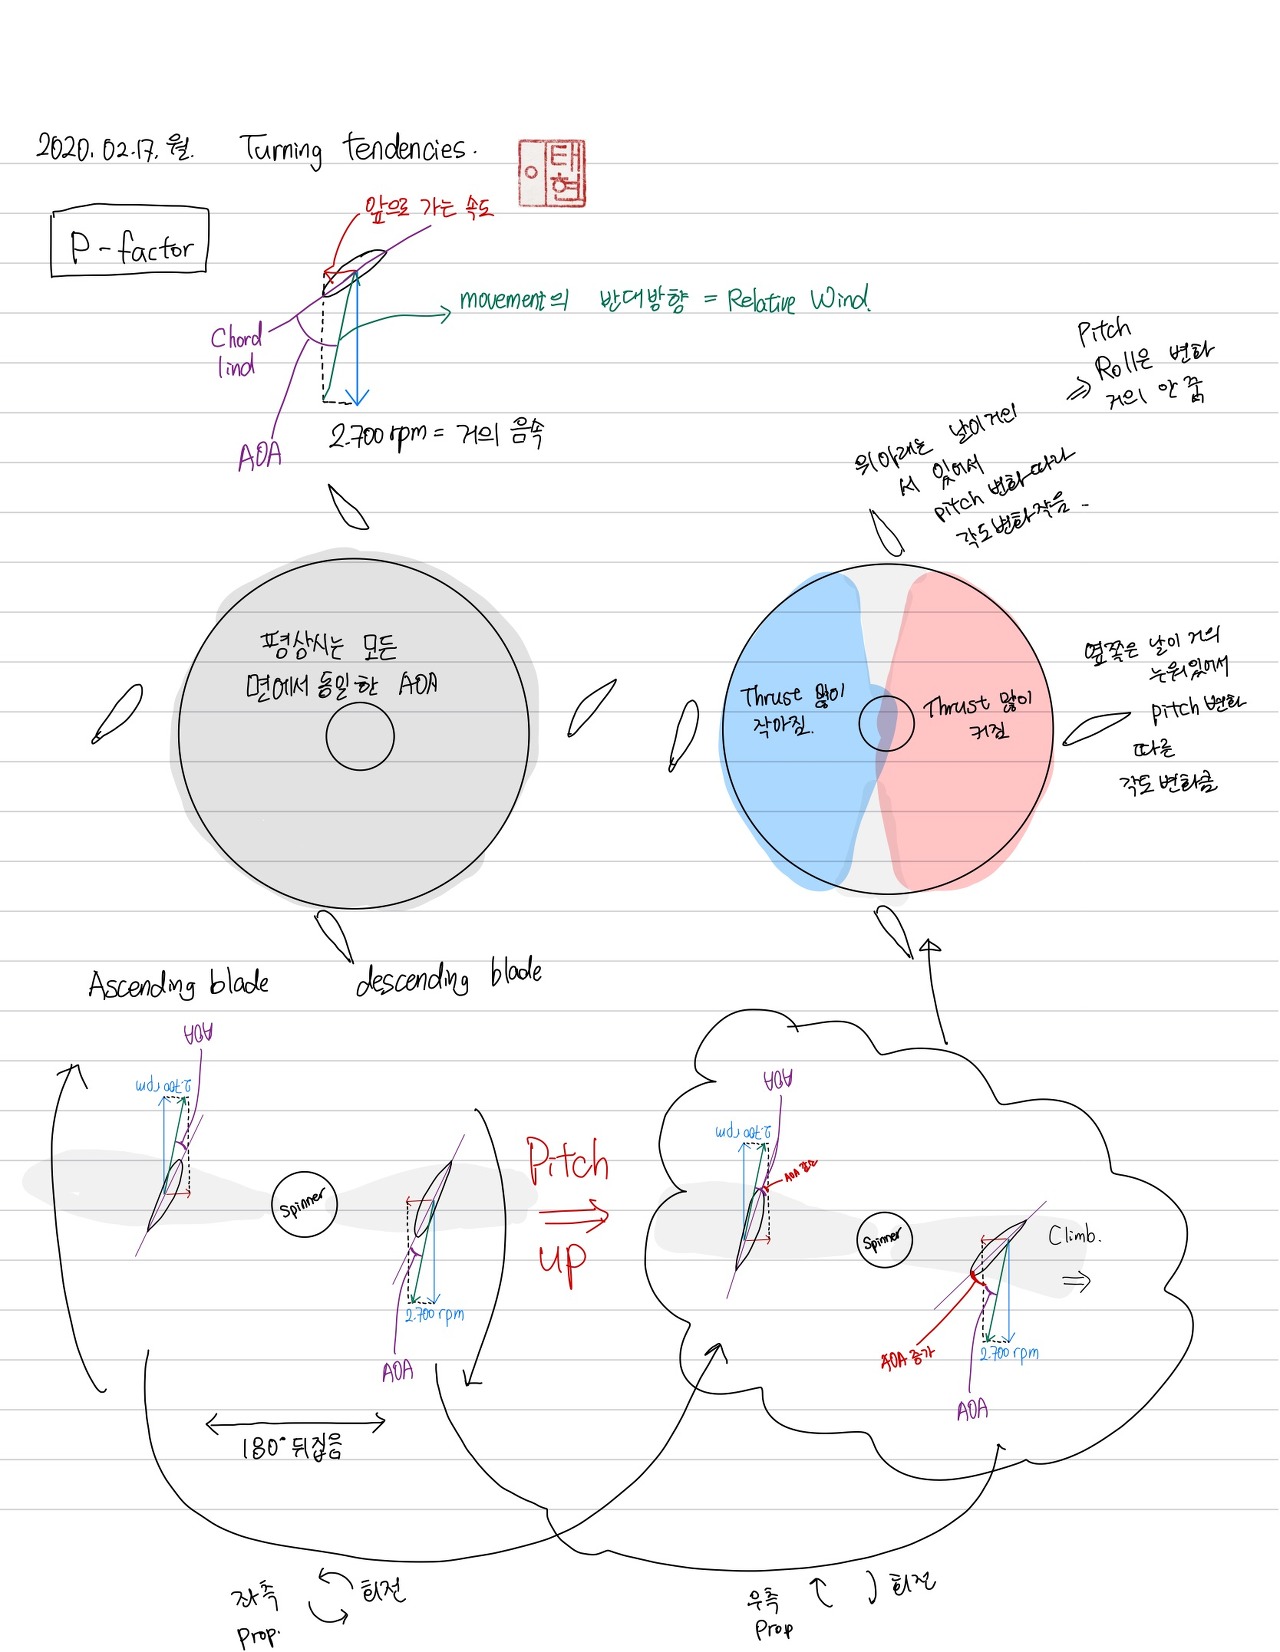 2020.02.17.월. Turning tendencies.
이태현
P-factor
앞으로 가는 속도
movement의 반대방향 = Relative Wind.
Chord
lind
AOA
2.700 rpm = 거의 음속
Pitch
Roll은 변화
⇒ 거의 안 줌
위아래는 날이 거의
서 있어서
pitch 변화 따라
각도변화 작음.
평상시는 모든
면에서 동일한 AOA
Thrust 많이
작아짐.
Thrust 많이
커짐
옆쪽은 날이 거의
누워있어서
pitch 변화
따른
각도 변화큼
Ascending blade
descending blade
AOA
2.700 rpm
Spinner
2.700 rpm
AOA
Pitch
⇒
up
AOA
2.700
rpm
AOA 감소
Spinner
Climb.
⇒
AOA 증가
2.700 rpm
AOA
180° 뒤집음
좌측 회전
Prop.
우측 회전
Prop